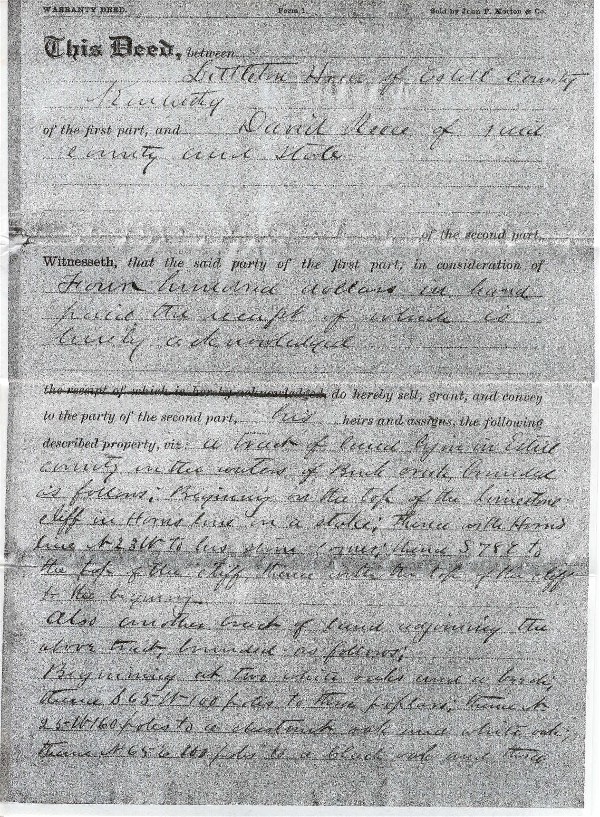 WARRANTY DEED. Form 1. Sold by John P. Morton & Co.
This Deed, between
Littleton Horn of Estill County
Kentucky
of the first part, and David Reece of said
county and State
of the second part,
Witnesseth, that the said party of the first part, in consideration of
Four hundred dollars in hand
paid the receipt of which is
hereby acknowledged
the receipt of which is hereby acknowledged, do hereby sell, grant, and convey
to the party of the second part, his heirs and assigns, the following
described property, viz: a tract of land lying in Estill
county in the waters of Buck creek bounded
as follows; Beginning on the top of the Limestone
cliff in Horns line in a stake; thence with Horns
line N 23 W to his corner; thence S 78 E to
the top of the cliff thence with the top of the cliff
to the beginning
Also another tract of land adjoining the
above tract, bounded as follows;
Beginning at two white oaks and a beech;
thence S 65 W 100 poles to three poplars; thence N
25 W 160 poles to a chestnut oak and white oak;
thence N 65 E 100 poles to a black oak and three